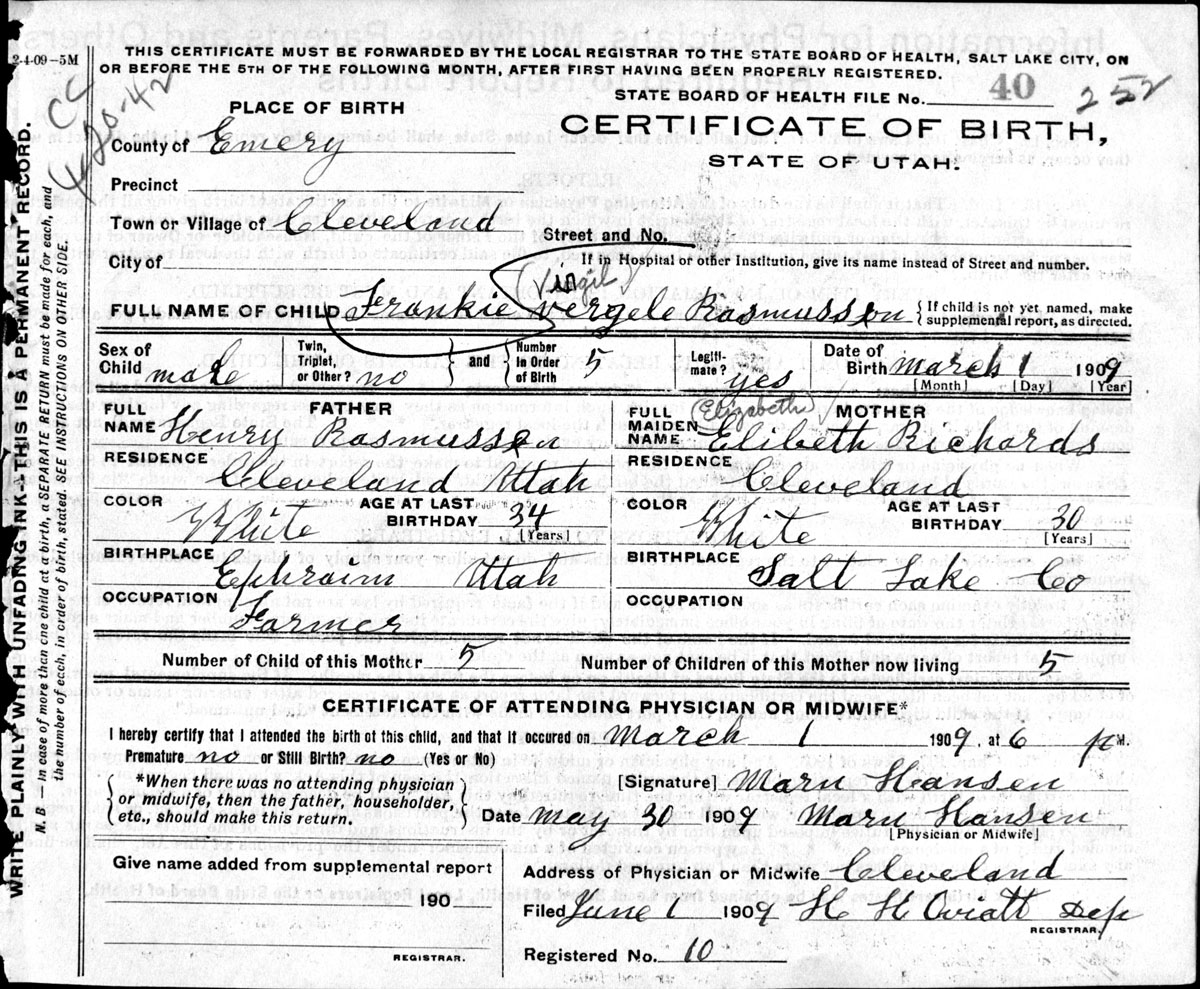 2-4-09—5M
THIS CERTIFICATE MUST BE FORWARDED BY THE LOCAL REGISTRAR TO THE STATE BOARD OF HEALTH, SALT LAKE CITY, ON
OR BEFORE THE 5TH OF THE FOLLOWING MONTH, AFTER FIRST HAVING BEEN PROPERLY REGISTERED.
STATE BOARD OF HEALTH FILE No. 40 252
PLACE OF BIRTH
CERTIFICATE OF BIRTH,
STATE OF UTAH.
County of Emery
Precinct
Town or Village of Cleveland
Street and No.
City of
If in Hospital or other Institution, give its name instead of Street and number.
(Virgil)
FULL NAME OF CHILD Frankie Vergele Rasmusson { If child is not yet named, make
supplemental report, as directed.
Sex of Child male
Twin, Triplet, or Other? no } and { Number in Order of Birth 5
Legiti-mate? yes
Date of Birth March 1 1909
[Month] [Day] [Year]
FATHER
FULL NAME Henry Rasmusson
RESIDENCE
Cleveland Utah
COLOR White
AGE AT LAST BIRTHDAY 34
[Years]
BIRTHPLACE
Ephraim Utah
OCCUPATION
Farmer
MOTHER
(Elizabeth)
FULL MAIDEN NAME Elibeth Richards
RESIDENCE
Cleveland
COLOR White
AGE AT LAST BIRTHDAY 30
[Years]
BIRTHPLACE
Salt Lake Co
OCCUPATION
Number of Child of this Mother 5 Number of Children of this Mother now living 5
CERTIFICATE OF ATTENDING PHYSICIAN OR MIDWIFE*
I hereby certify that I attended the birth of this child, and that it occured on March 1 1909, at 6 P M.
Premature no or Still Birth? no (Yes or No)
{ *When there was no attending physician
or midwife, then the father, householder,
etc., should make this return. }
[Signature] Maru Hansen
Date May 30 1909 Maru Hansen
[Physician or Midwife]
Give name added from supplemental report
190
REGISTRAR.
Address of Physician or Midwife Cleveland
Filed June 1 1909 H H Oviatt Dep
REGISTRAR.
Registered No. 10
WRITE PLAINLY WITH UNFADING INK—THIS IS A PERMANENT RECORD.
N. B.—In case of more than one child at a birth, a SEPARATE RETURN must be made for each, and
the number of each, in order of birth, stated. SEE INSTRUCTIONS ON OTHER SIDE.